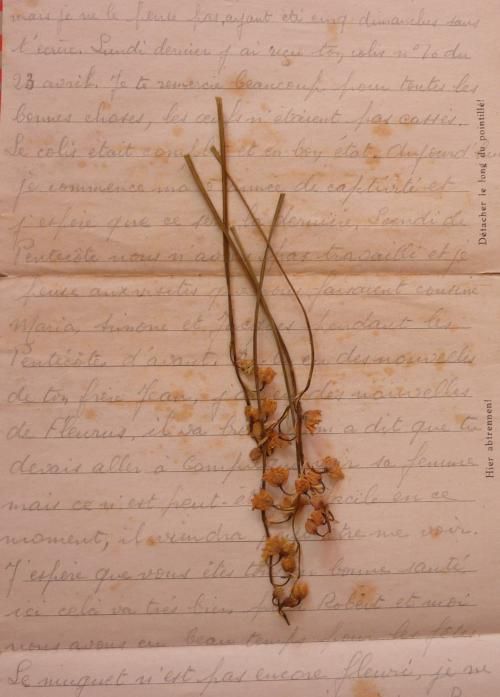 mais je ne le pense pas, ayant été cinq dimanches sans
t'écrire. Lundi dernier j'ai reçu ton colis n°70 du
23 avril. Je te remercie beaucoup pour toutes les
bonnes choses, les œufs n'étaient pas cassés.
Le colis était et en bon état. Aujourd'
je commence ma de captivité et
j'espère que ce la dernière, Lundi de
Pentecôte nous n'av pas travaillé et je
pense aux visites faisaient cousine
Maria, Simone et pendant les
Pentecôtes d'avant. eu des nouvelles
de ton frère Jean, j' des nouvelles
de Fleurus, il va a dit que tu
devais aller à sa femme
mais ce n'est peut facile en ce
moment, il viendra me voir.
J'espère que vous êtes bonne santé
ici cela va très bien Robert et moi
nous avons eu beau temps pour les fêtes
Le muguet n'est pas encore fleuri, je ne
Détacher le long du pointillé!
Hier abtrennen!